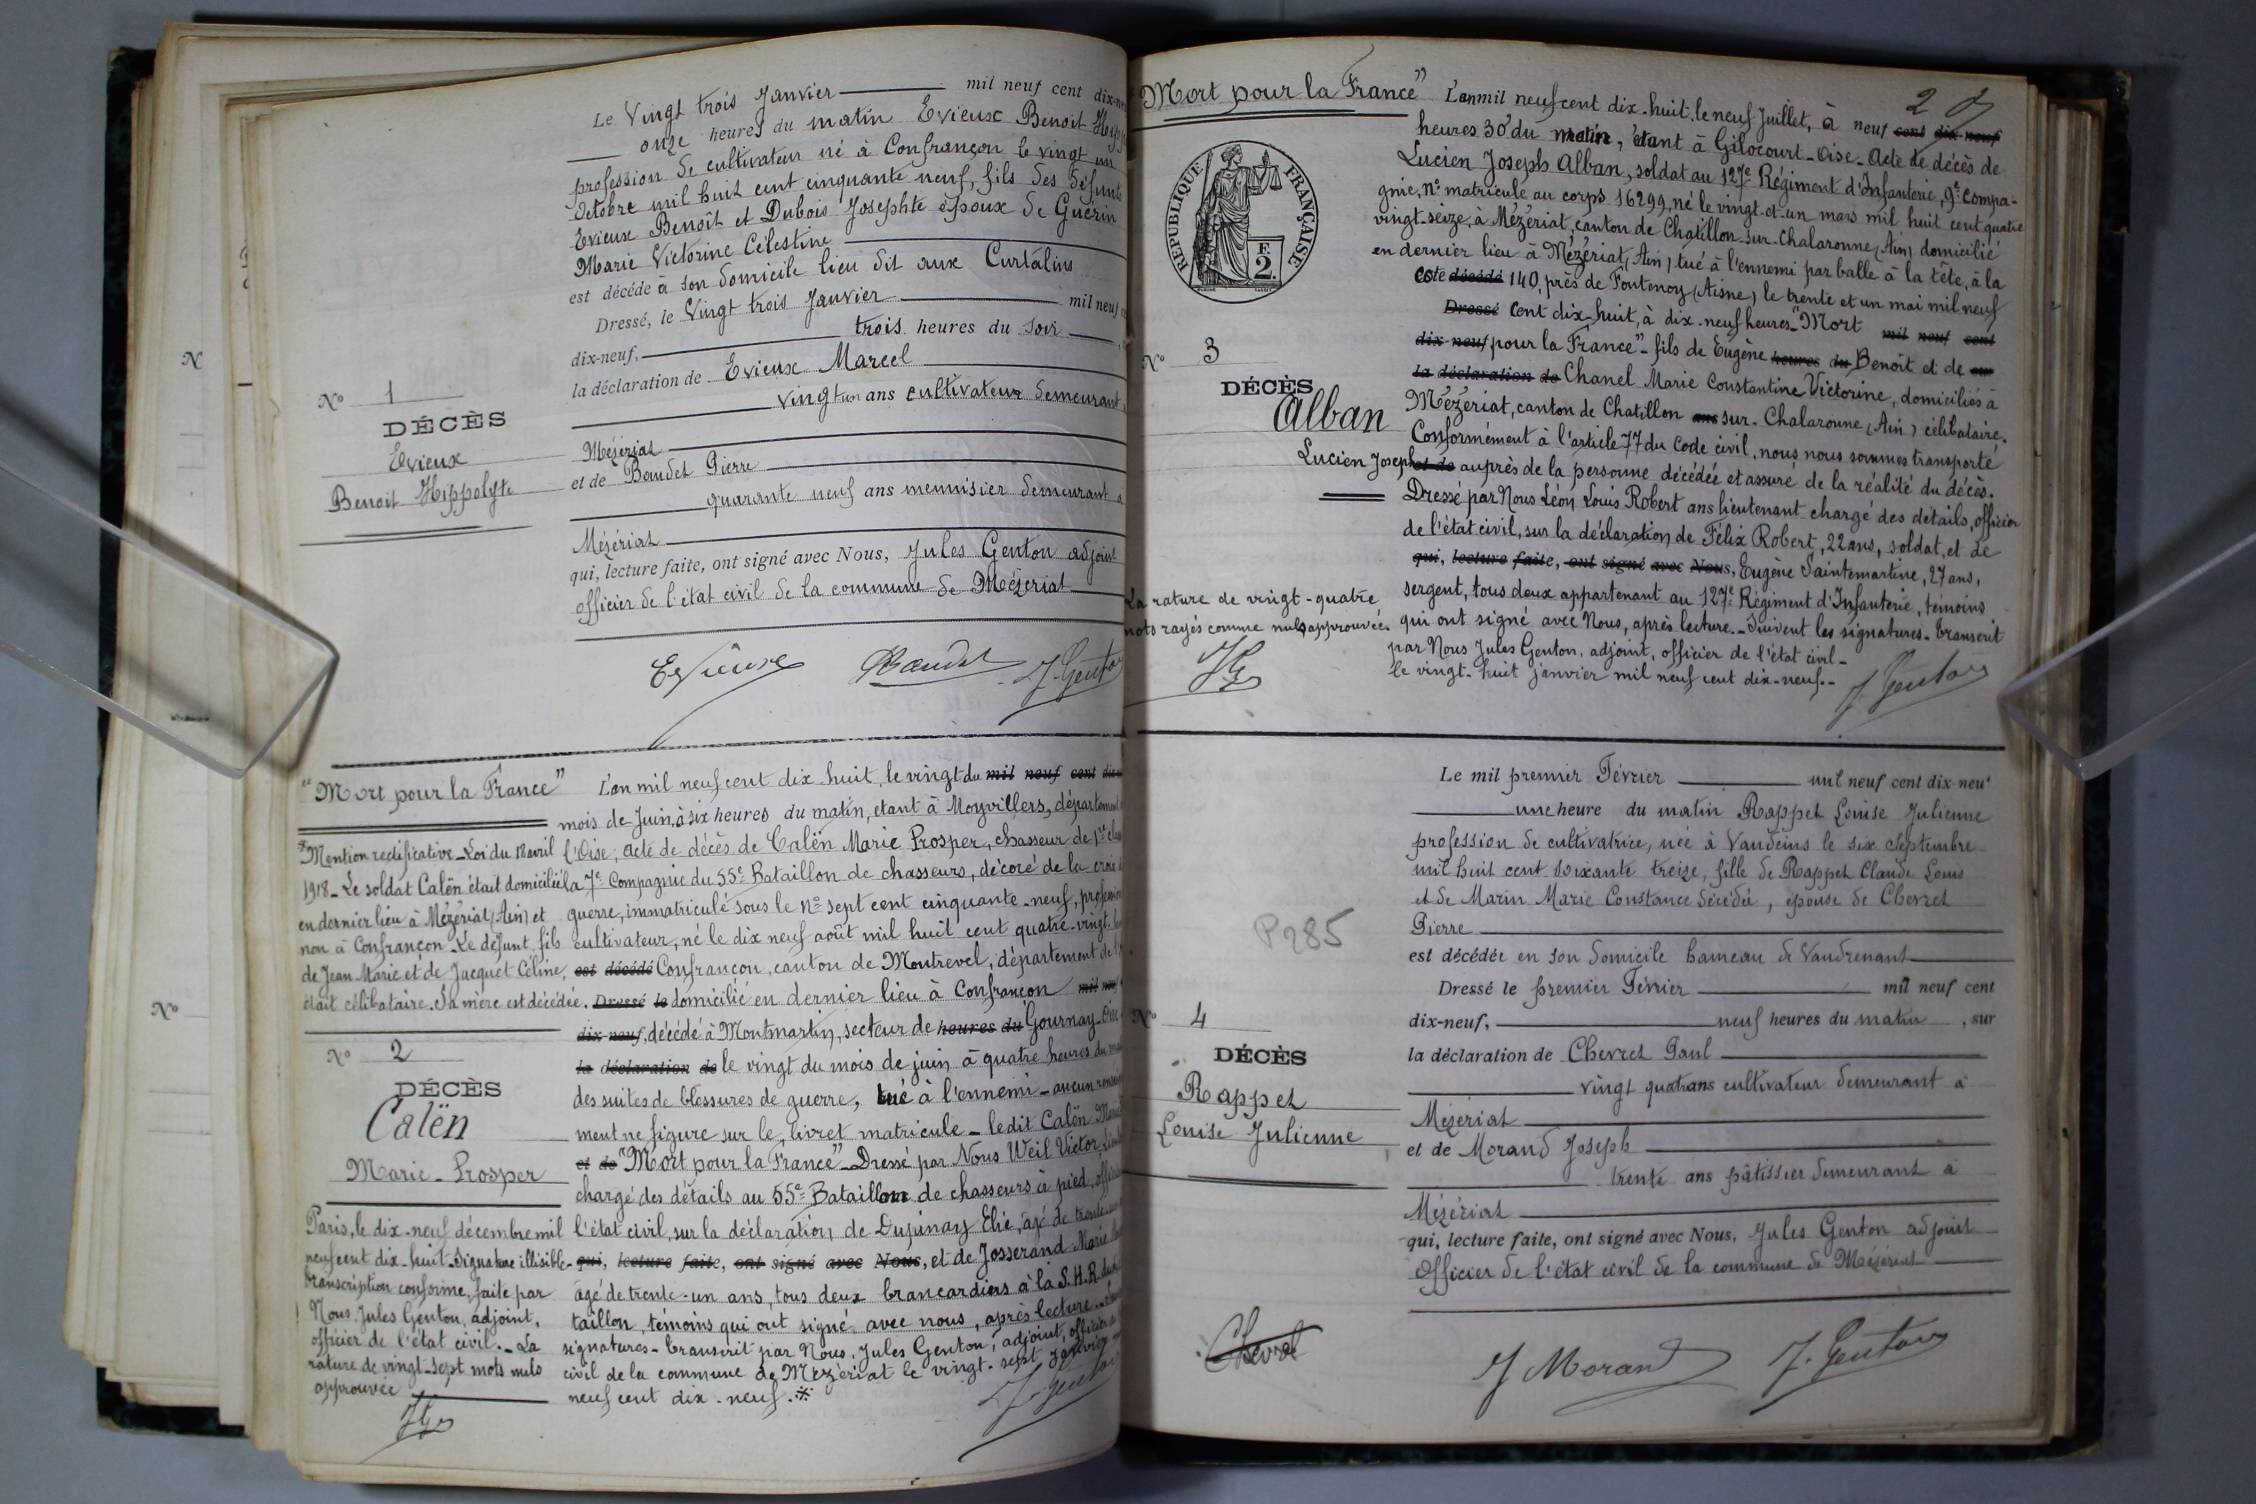 Le Vingt trois Janvier mil neuf cent dix-
onze heures du matin Evieux Benoit
profession de cultivateur né à Confrançon le vingt un
Octobre mil huit cent cinquante neuf, fils des défunts
Evieux Benoît et Dubois Josephte époux de Guérin
Marie Victorine Célestine
est décédé à son domicile lieu dit aux Curtalins
Dressé, le Vingt trois Janvier mil neuf
dix-neuf, trois heures du soir
la déclaration de Evieux Marcel
vingt un ans cultivateur demeurant
Mézériat
et de Baudet Pierre
quarante neuf ans menuisier demeurant a
Mézériat
qui, lecture faite, ont signé avec Nous, Jules Genton adjoint
officier de l'état civil de la commune de Mézeriat
Nº 1
DÉCÈS
Evieux
Benoit Hippolyte
Evieux Baudet J. Genton
"Mort pour la France"
*Mention rectificative_Loi du 18 avril
1918_Le soldat Calën était domicilié
en dernier lieu à Mézériat (Ain) et
non à Confrançon_Le défunt, fils
de Jean Marie et de Jacquet Céline,
était célibataire. Sa mère est décédée.
Nº 2
DÉCÈS
Calën
Marie-Prosper
Paris, le dix-neuf décembre mil
neuf cent dix-huit_Signature illisible_
transcription conforme, faite par
Nous, Jules Genton, adjoint,
officier de l'état civil._La
rature de vingt-sept mots nuls
approuvée
L'an mil neuf cent dix-huit, le vingt du mil neuf cent
mois de Juin, à six heures du matin, etant à Moyvillers, département
l'Oise, acte de décès de Calën Marie Prosper, chasseur de 1re
la 7e Compagnie du 55e Bataillon de chasseurs, décoré de la croix
guerre, immatriculé sous le nº sept cent cinquante-neuf, profession
cultivateur, né le dix neuf août mil huit cent quatre-vingt
est décédé Confrançon, canton de Montrevel, département de
Dressé le domicilié en dernier lieu à Confrançon mil neuf
dix-neuf, décédé à Montmartin, secteur de heures du Gournay
la déclaration de le vingt du mois de juin à quatre heures du
des suites de blessures de guerre, tué à l'ennemi_aucun
ment ne figure sur le livret matricule_ledit Calën
et de "Mort pour la France"_Dressé par Nous Weil Victor,
chargé des détails au 55e Bataillon de chasseurs à pied,
l'état civil, sur la déclaration de Dupinay Elie, âgé de trente
qui, lecture faite, ont signé avec Nous, et de Josserand Marie
âgé de trente-un ans, tous deux brancardiers à la S.H.R.
taillon, témoins qui ont signé avec nous, après lecture
signatures_transcrit par Nous, Jules Genton, adjoint, officier
civil de la commune de Mézériat le vingt-sept janvier
neuf cent dix-neuf.*
J. Genton
"Mort pour la France"
2
RÉPUBLIQUE FRANÇAISE
F.
2.
Nº 3
DÉCÈS
Alban
Lucien Joseph
La rature de vingt-quatre
mots rayés comme nuls approuvée.
L'an mil neuf cent dix-huit, le neuf Juillet, à neuf cent dix-neuf
heures 30' du matin, étant à Gilocourt_Oise_Acte de décès de
Lucien Joseph Alban, soldat au 127e Régiment d'Infanterie, 9e Compa-
gnie, nº matricule au corps 16299, né le vingt-et-un mars mil huit cent quatre
vingt-seize, à Mézériat, canton de Chatillon-sur-Chalaronne (Ain) domicilié
en dernier lieu à Mézériat (Ain) tué à l'ennemi par balle à la tête, à la
cote décédé 140, près de Fontenoy (Aisne) le trente et un mai mil neuf
Dressé cent dix-huit, à dix-neuf heures_"Mort mil neuf cent
dix-neuf pour la France"_fils de Eugène heures du Benoît et de sur
la déclaration de Chanel Marie Constantine Victorine, domiciliés à
Mézériat, canton de Chatillon ans sur-Chalaronne (Ain) célibataire.
Conformément à l'article 77 du Code civil, nous nous sommes transporté
et de auprès de la personne décédée et assuré de la réalité du décès.
Dressé par Nous Léon Louis Robert ans lieutenant chargé des détails, officier
de l'état civil, sur la déclaration de Félix Robert, 22 ans, soldat, et de
qui, lecture faite, ont signé avec Nous, Eugène Saintemartine, 27 ans,
sergent, tous deux appartenant au 127e Régiment d'Infanterie, témoins
qui ont signé avec Nous, après lecture._Suivent les signatures_transcrit
par Nous Jules Genton, adjoint, officier de l'état civil_
le vingt-huit janvier mil neuf cent dix-neuf._
J. Genton
P285
Nº 4
DÉCÈS
Rappet
Louise Julienne
Le mil premier Février mil neuf cent dix-neuf
une heure du matin Rappet Louise Julienne
profession de cultivatrice, née à Vandeins le six Septembre
mil huit cent soixante treize, fille de Rappet Claude Louis
et de Marin Marie Constance décédée, épouse de Chevret
Pierre
est décédée en son domicile hameau de Vaudrenant
Dressé le premier Février mil neuf cent
dix-neuf, neuf heures du matin, sur
la déclaration de Chevret Paul
vingt quatre ans cultivateur demeurant à
Mézeriat
et de Morand Joseph
trente ans pâtissier demeurant à
Mézériat
qui, lecture faite, ont signé avec Nous, Jules Genton adjoint
Officier de l'état civil de la commune de Mézériat
Chevret J Morand J. Genton